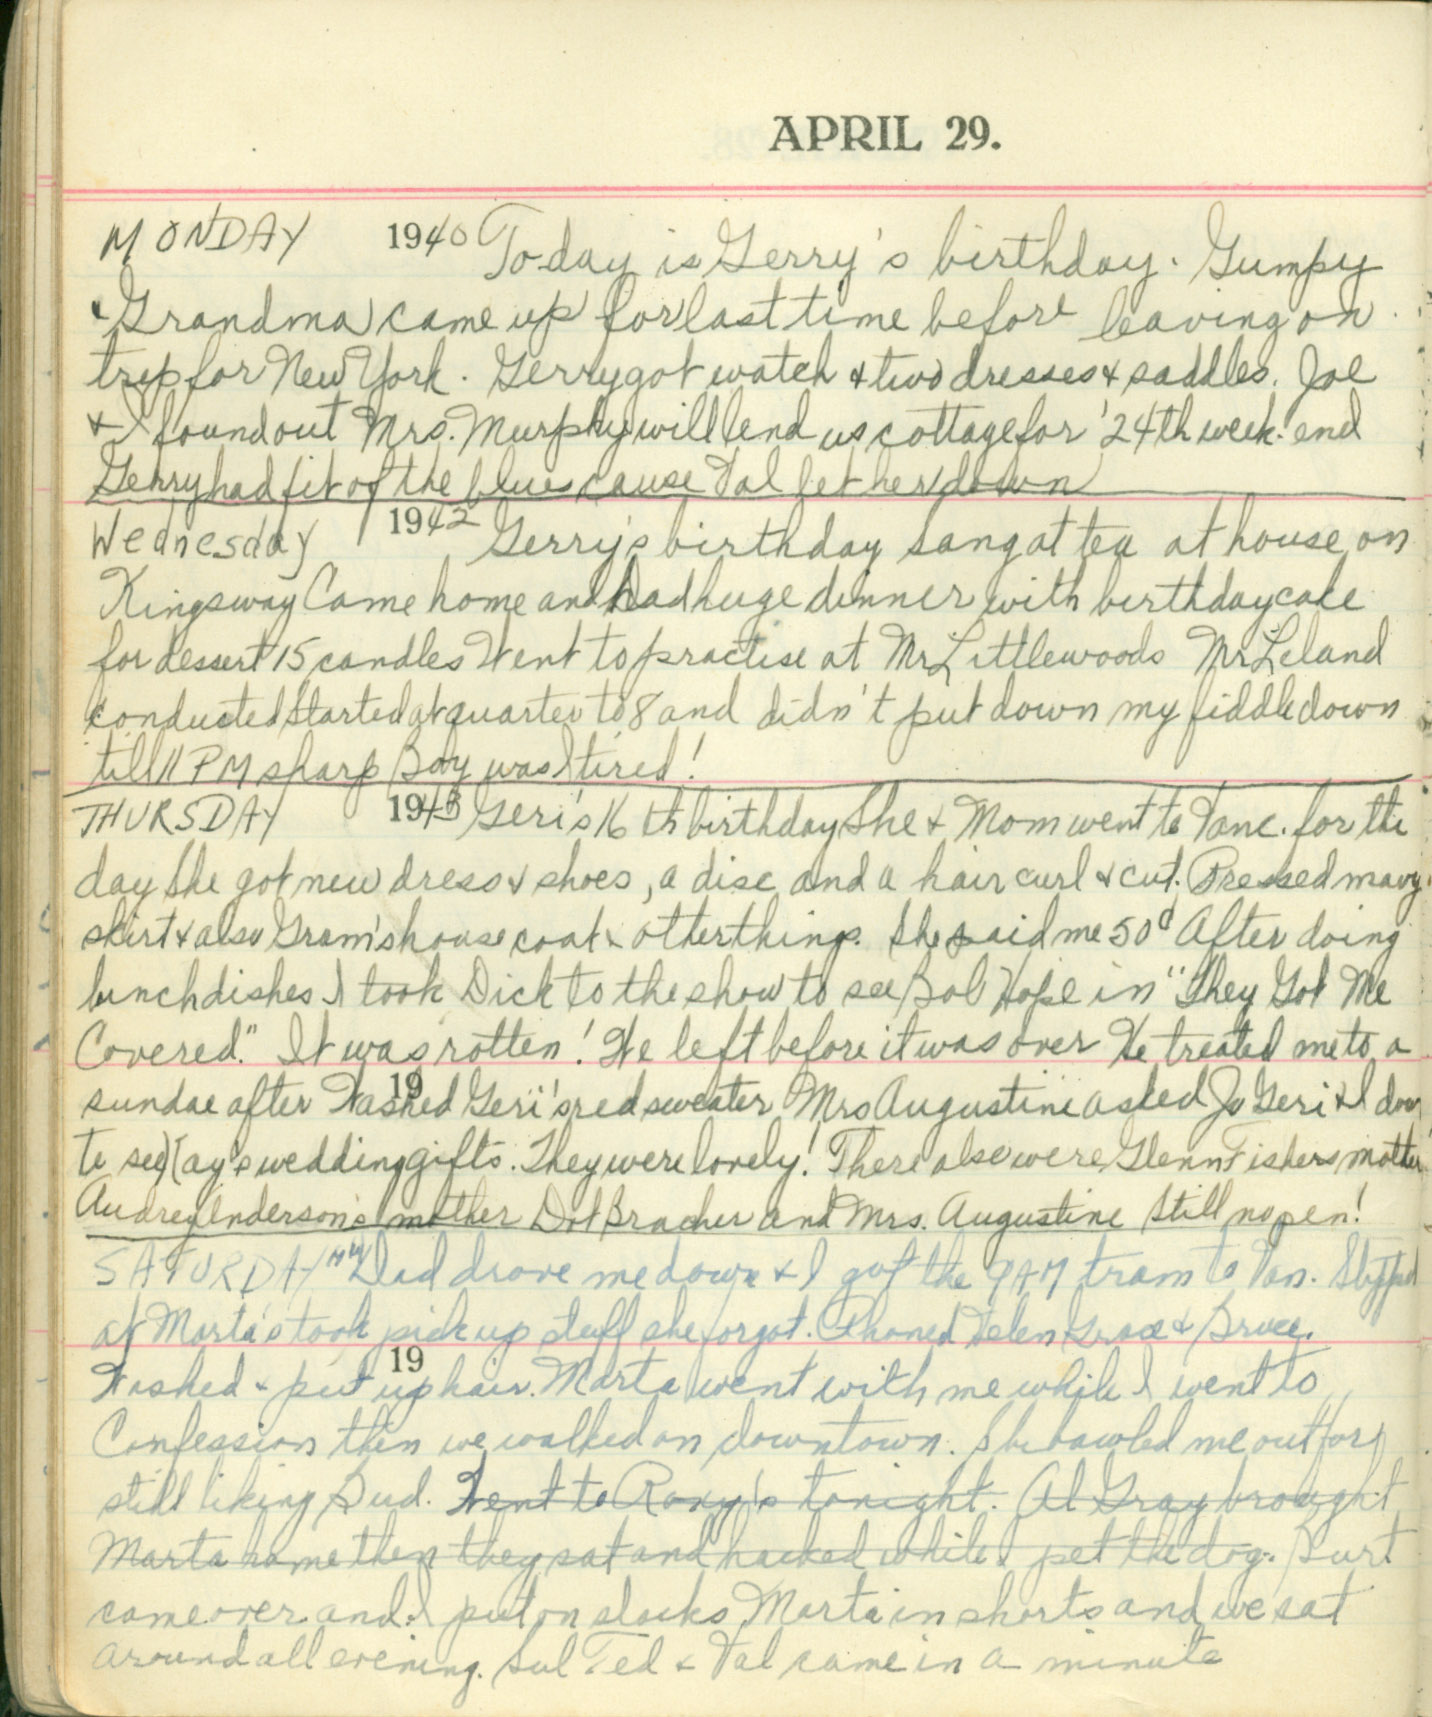 APRIL 29.
MONDAY 1940 Today is Gerry's birthday. Gumpy
& Grandma came up for last time before leaving on
trip for New York. Gerry got watch & two dresses & saddles. Joe
& I found out Mrs. Murphy will lend us cottage for '24th week-end
Gerry had fit of the blues cause Val let her down
Wednesday 1942 Gerry's birthday sang at tea at house on
Kingsway Came home and had huge dinner with birthday cake
for dessert 15 candles Went to practise at Mr Littlewoods Mr Leland
conducted Started at quarter to 8 and didn't put down my fiddle down
till 11 PM sharp Boy was I tired!
THURSDAY 1943 Geri's 16th birthday She & Mom went to Vanc. for the
day She got new dress & shoes, a disc and a hair curl & cut. Pressed navy
skirt & also Gram's housecoat & other things. She paid me 50¢ After doing
lunch dishes I took Dick to the show to see Bob Hope in "They Got Me
Covered." It was rotten! We left before it was over He treated me to a
19
sundae after Washed Geri's red sweater Mrs Augustine asked Jo Geri & I down
to see Kay's wedding gifts. They were lovely! There also were Glenn Fishers mother
Audrey Anderson's mother Dot Bracher and Mrs. Augustine Still no pen!
SATURDAY '44 Dad drove me down & I got the 9 AM tram to Van. Stopped
at Marta's took pick up stuff she forgot. Phoned Helen Grace & Bruce.
19
Washed & put up hair. Marta went with me while I went to
Confession then we walked on downtown. She bawled me out for
still liking Bud. Went to Roxy's tonight. Al Gray brought
Marta home then they sat and hacked while I pet the dog. Burt
came over and I put on slacks Marta in shorts and we sat
around all evening. Sul Ted & Val came in a minute